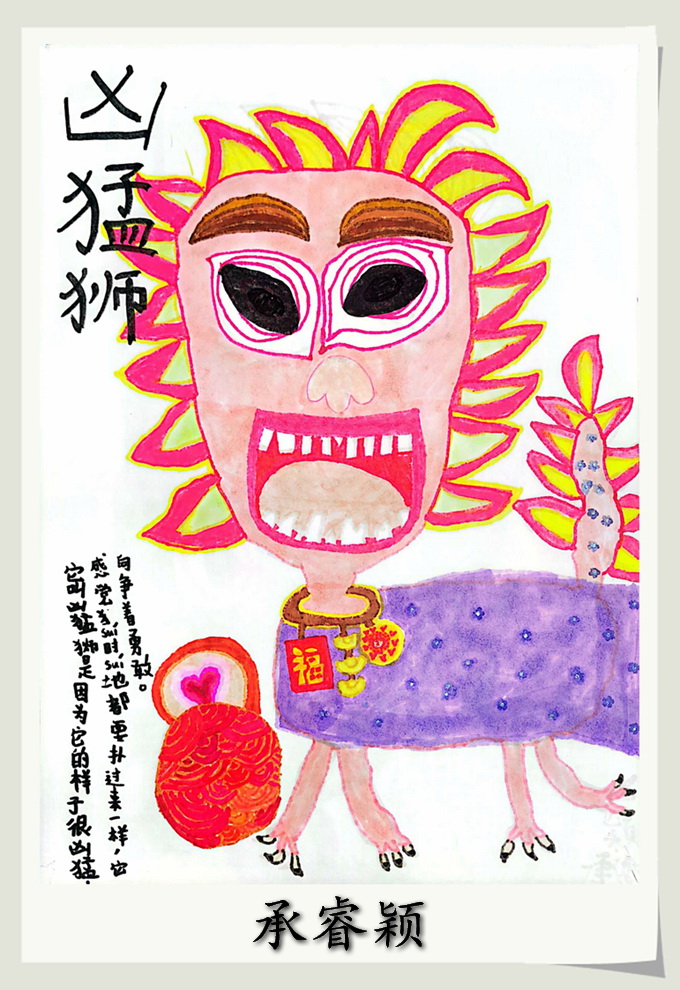 凶猛狮
它叫凶猛狮是因为它的样子很凶猛，
感觉suí时suí地都要扑过来一样，它
向争着勇敢。
福
承睿颖